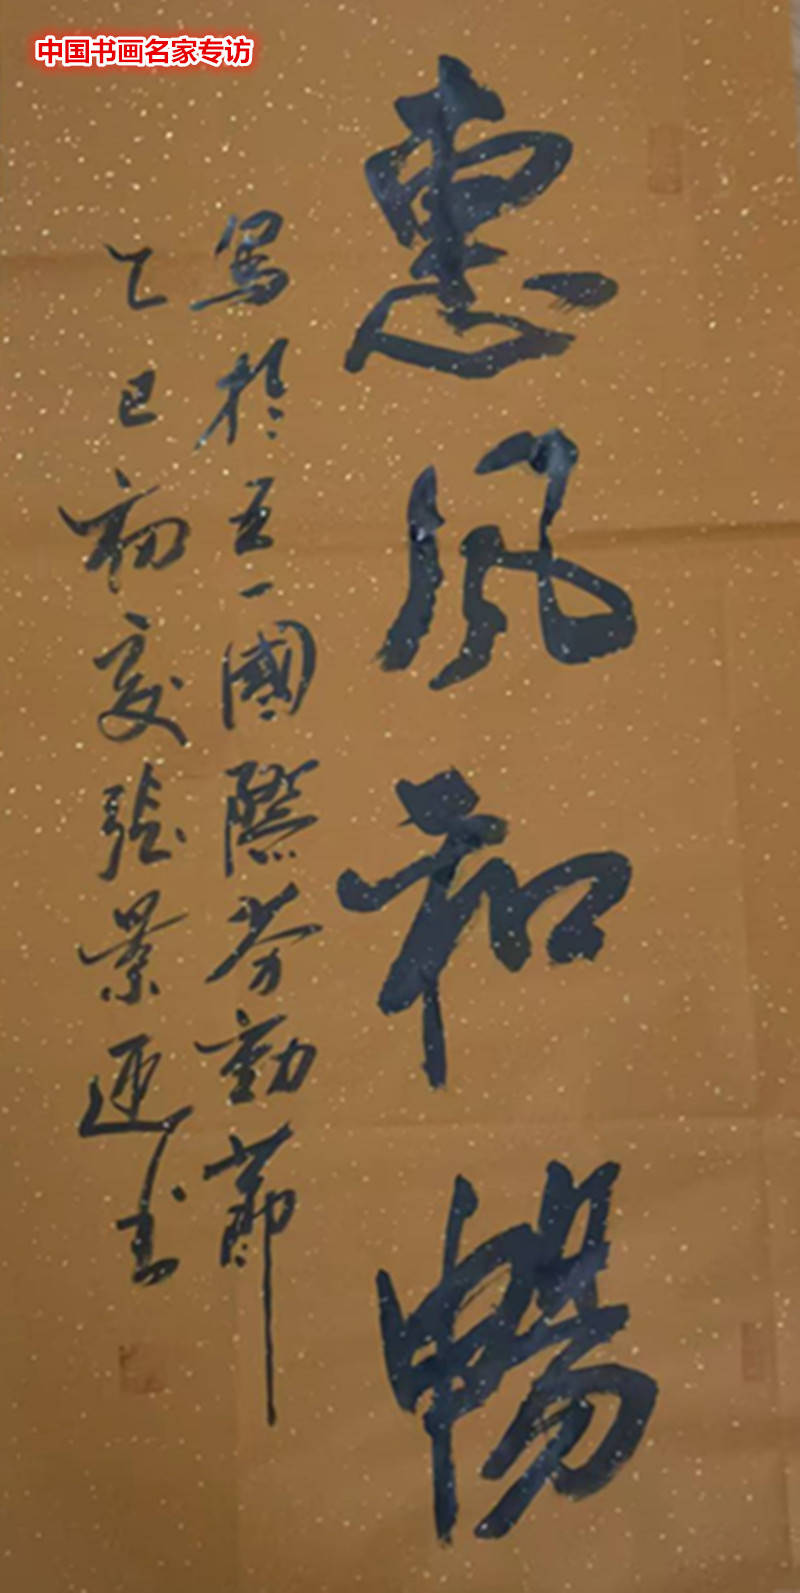 中国书画名家专访
惠风和暢
寫於五一國際劳動節
乙巳初夏張景迊书